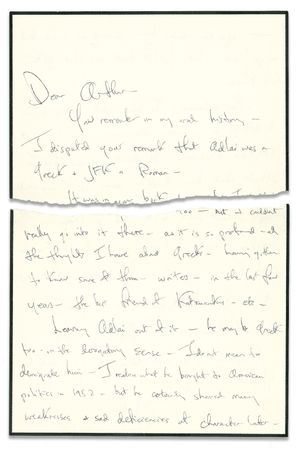 Dear Arthur—
You remember in my oral history—
I disputed your remark that Adlai was a
Greek & JFK a Roman—
It was in your book
too — but I couldn't
really go into it there — as it is so profound — all
the thoughts I have about Greeks — having gotten
to know some of them — writers — in the last few
years — the best friend of Kazantzakis — etc —
Leaving Adlai out of it — he may be Greek
too — in the derogatory sense — I do not mean to
denigrate him — I realize what he brought to American
politics in 1952 — but he certainly shared many
weaknesses & sad deficiencies of character later —